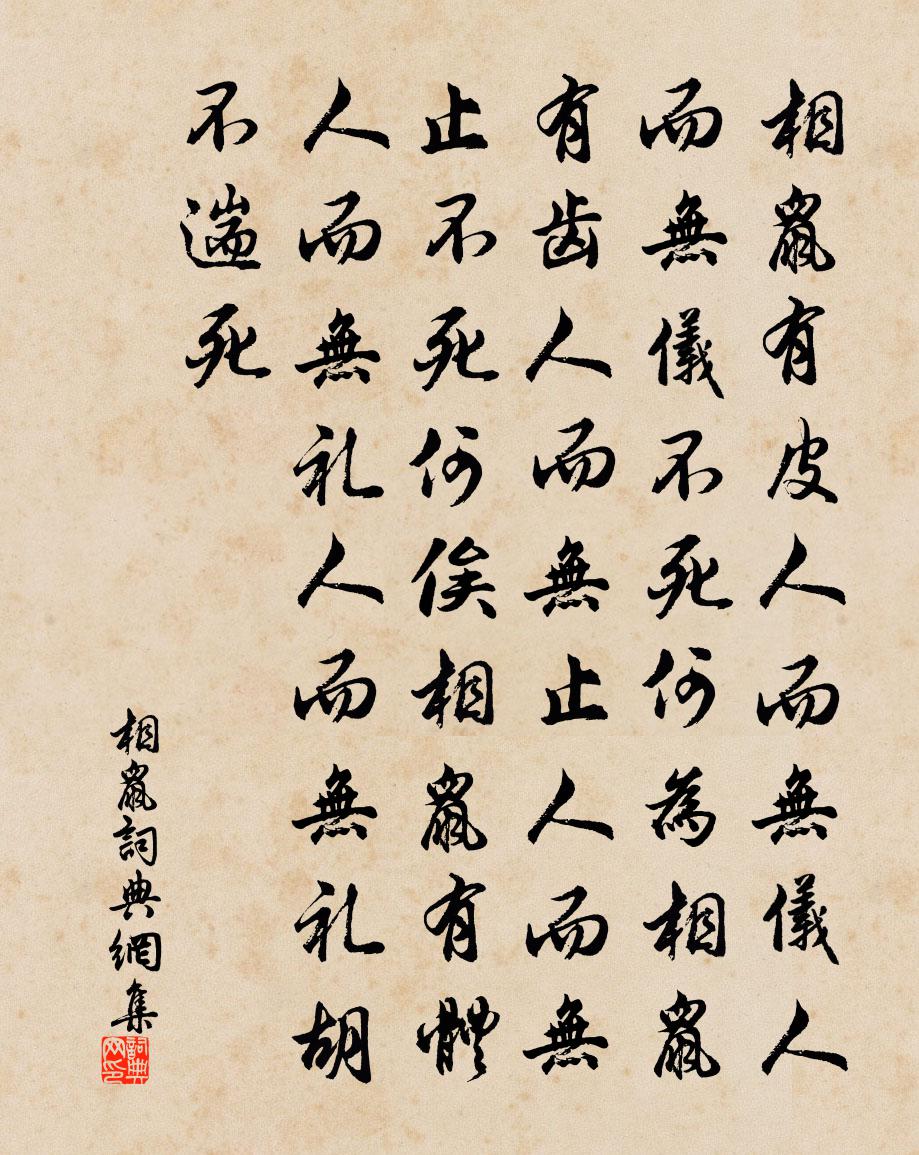 相鼠有皮人而無儀人
而無儀不死何為相鼠
有齿人而無止人而無
止不死何俟相鼠有體
人而無礼人而無礼胡
不遄死
相鼠詞典網集
詞典
网印